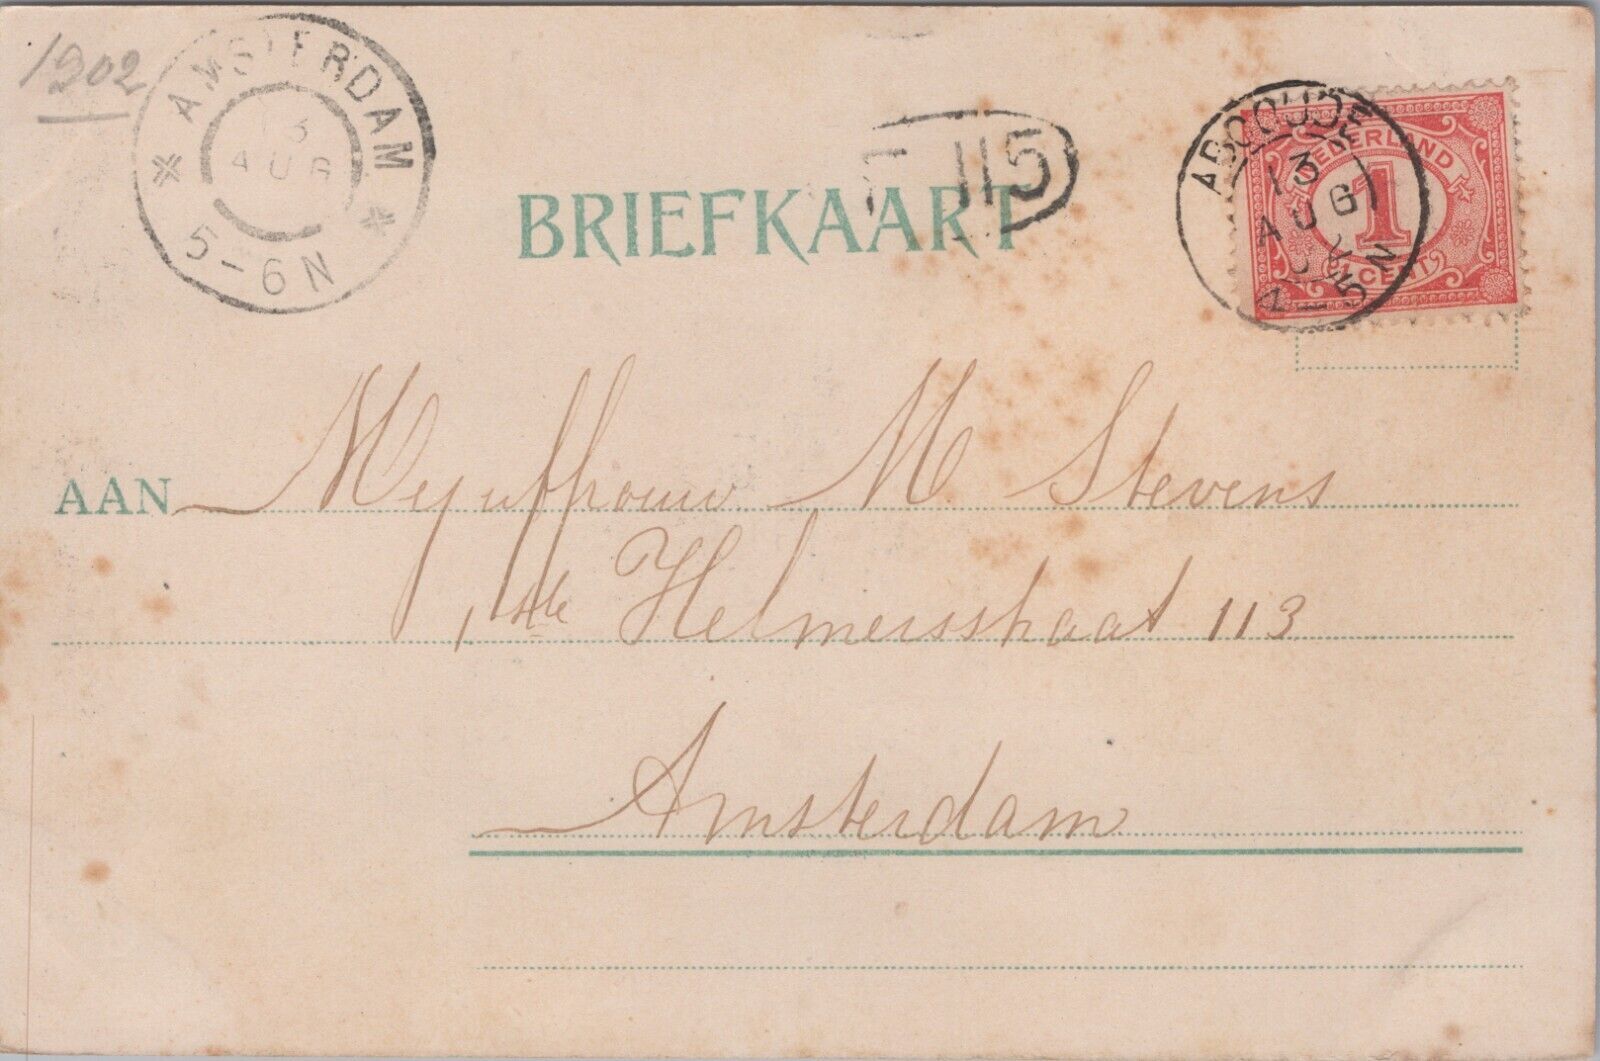 1902
AMSTERDAM
13
AUG
5-6N
115
ABCOUDE
13
AUG
4-5N
NEDERLAND
1
CENT
BRIEFKAART
AAN Mejuffrouw M Stevens
1ste Helmersstraat 113
Amsterdam